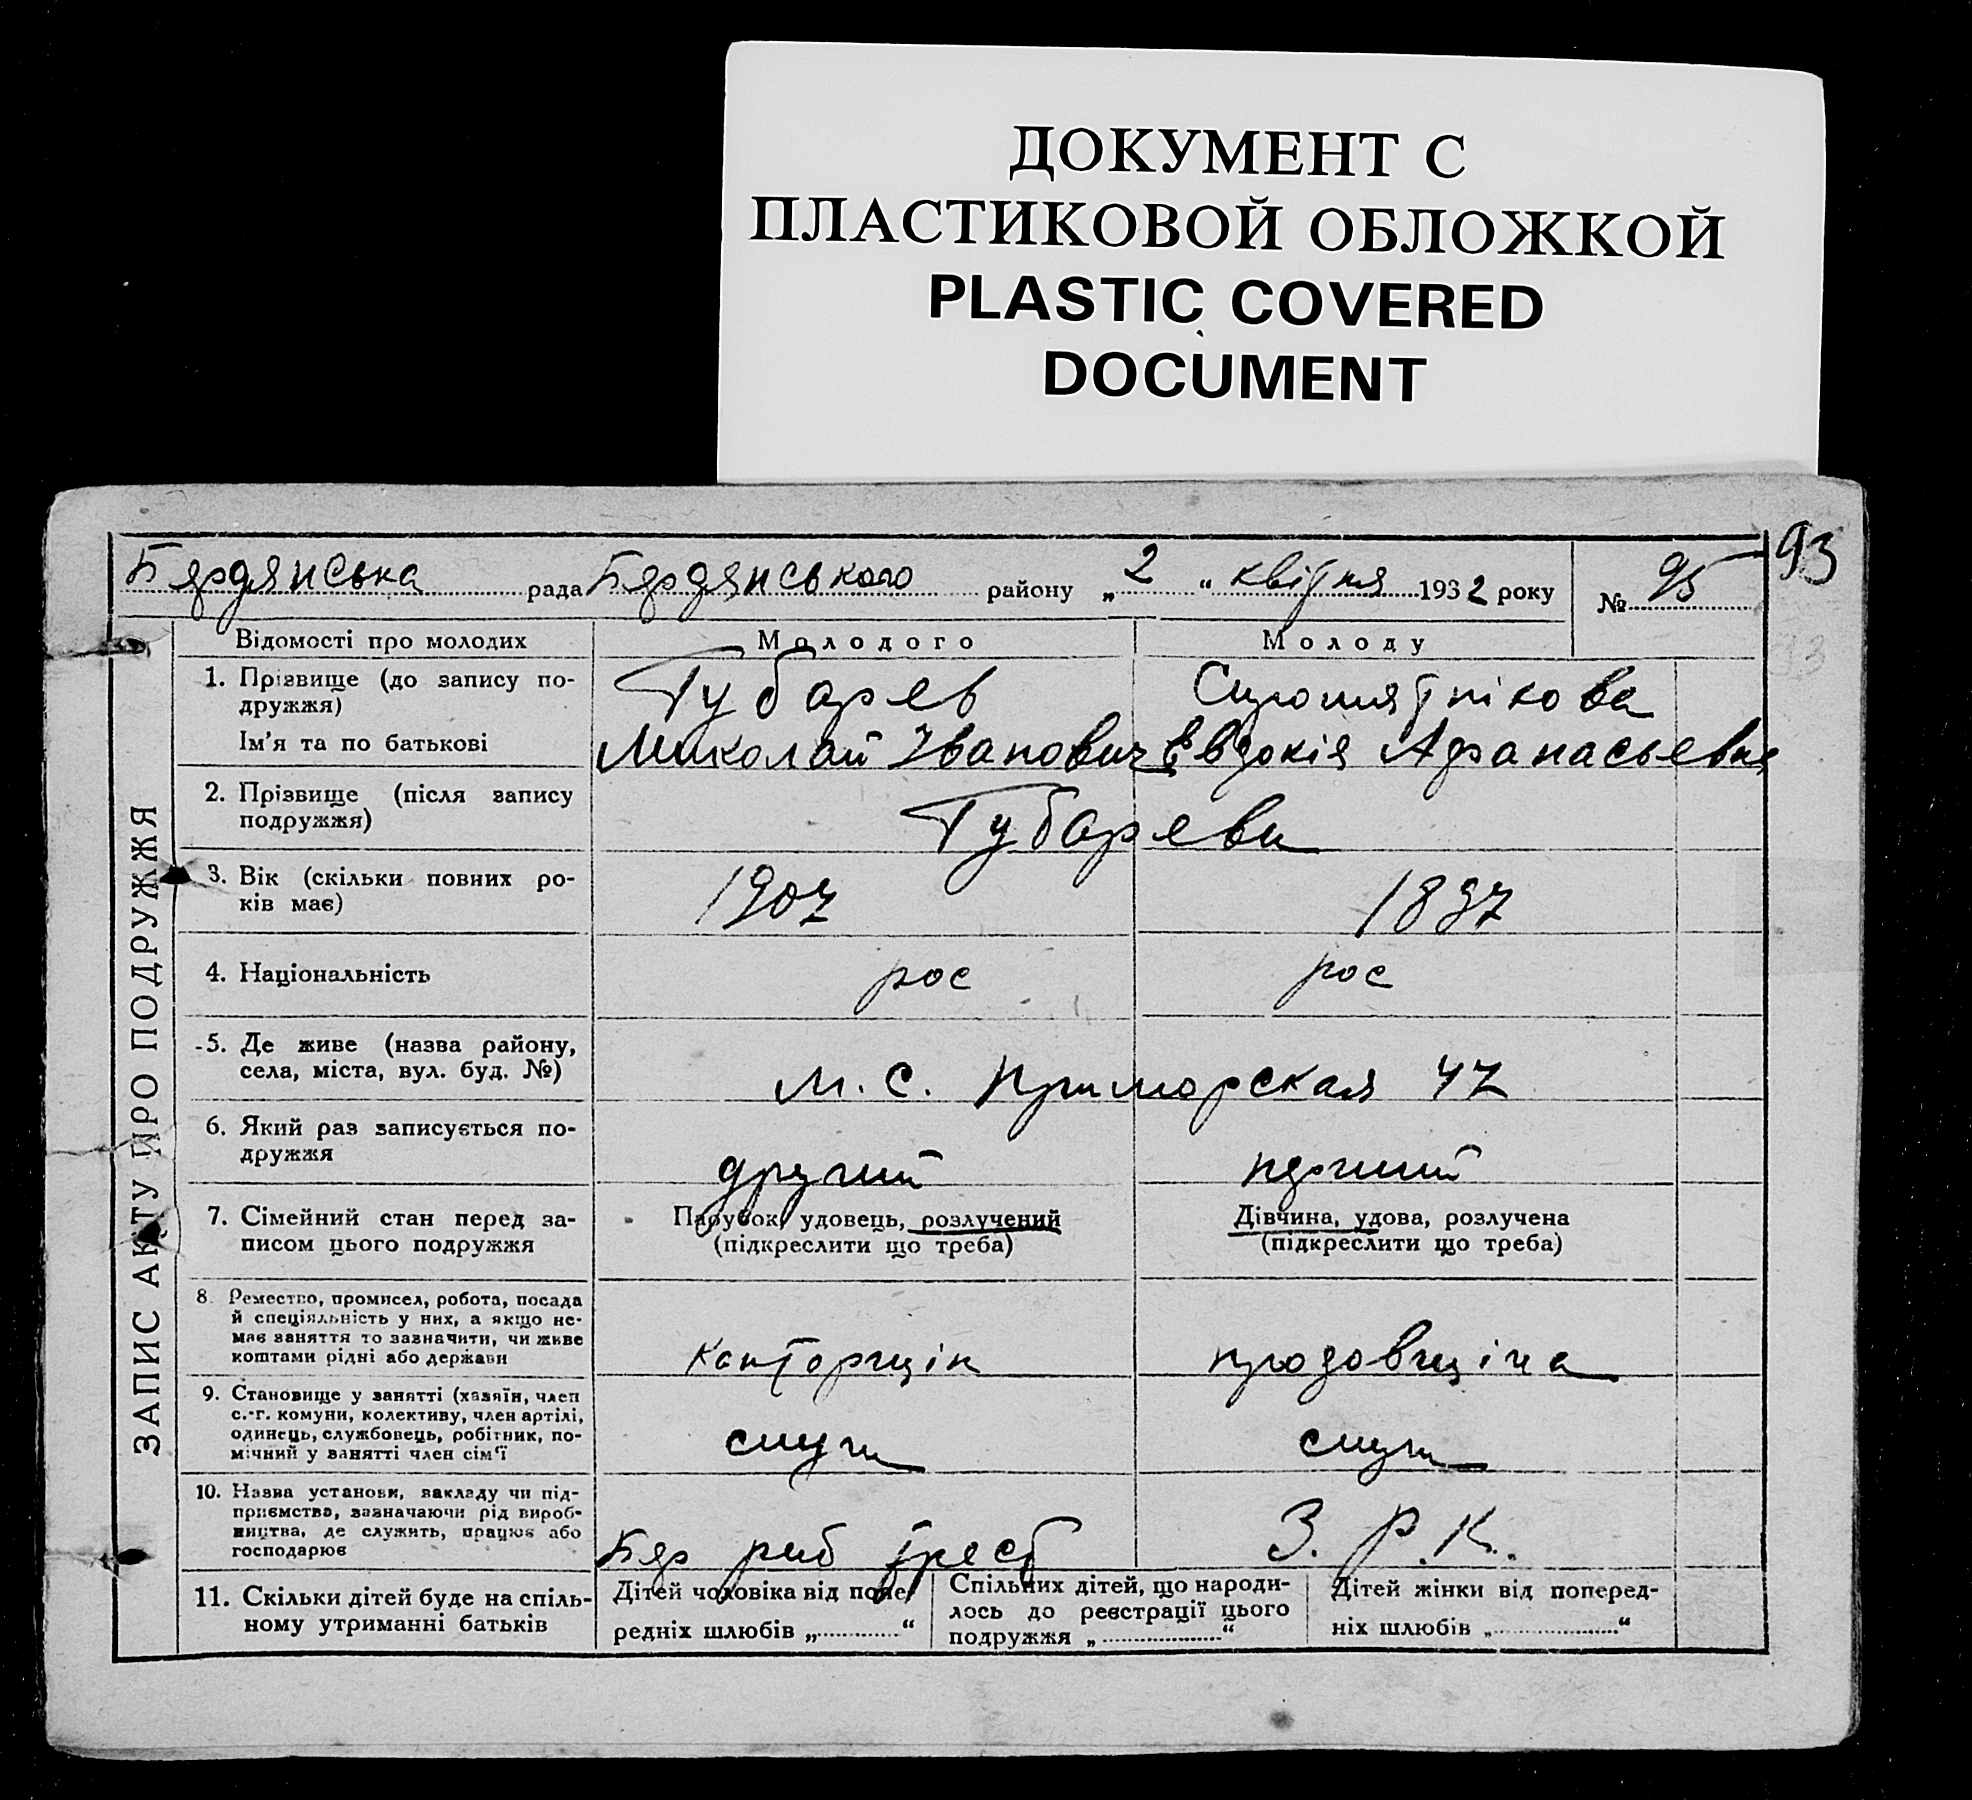 ДОКУМЕНТ С
ПЛАСТИКОВОЙ ОБЛОЖКОЙ
PLASTIC COVERED
DOCUMENT
93
Бердянська рада Бердянського району „ 2 “ квітня 1932 року № 95
93
ЗАПИС АКТУ ПРО ПОДРУЖЖЯ
Відомості про молодих Молодого Молоду
1. Прізвище (до запису по-
дружжя)
Губарев Сиромятнікова
Ім'я та по батькові Миколай Іванович Евдокія Афанасьевна
2. Прізвище (після запису
подружжя)
Губареви
3. Вік (скільки повних ро-
ків має)
1907 1897
4. Національність рос рос
5. Де живе (назва району,
села, міста, вул. буд. №)
М. С. Приморская 47
6. Який раз записується по-
дружжя
другий перший
7. Сімейний стан перед за-
писом цього подружжя
Парубок, удовець, розлучений
(підкреслити що треба)
Дівчина, удова, розлучена
(підкреслити що треба)
8. Ремество, промисел, робота, посада
й спеціяльність у них, а якщо не-
має заняття то зазначити, чи живе
коштами рідні або держави
конторщік продовщіца
9. Становище у занятті (хазяїн, член
с.-г. комуни, колективу, член артілі,
одинець, службовець, робітник, по-
мічний у занятті член сім'ї
служ служ
10. Назва установи, закладу чи під-
приємства, зазначаючи рід вироб-
ництва, де служить, працює або
господарює
Бер риб трест З. Р. К.
11. Скільки дітей буде на спіль-
ному утриманні батьків
Дітей чоловіка від попе-
редніх шлюбів „ “
Спільних дітей, що народи-
лось до реєстрації цього
подружжя „ “
Дітей жінки від поперед-
ніх шлюбів „ “